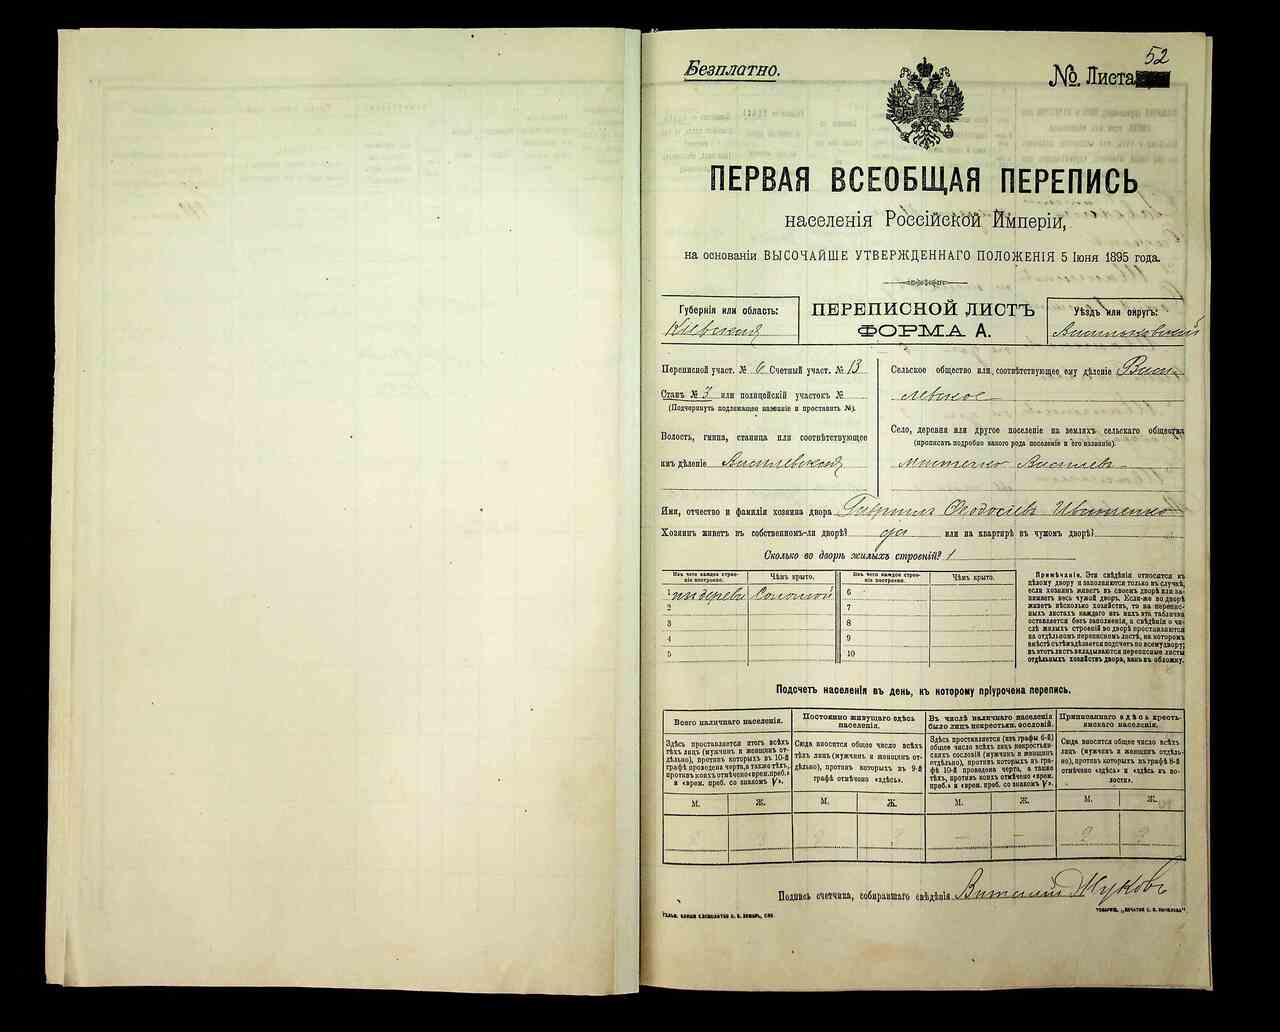 52
Безплатно.
№ Листа
ПЕРВАЯ ВСЕОБЩАЯ ПЕРЕПИСЬ
населенія Россійской Имперіи,
на основаніи ВЫСОЧАЙШЕ УТВЕРЖДЕННАГО ПОЛОЖЕНІЯ 5 Іюня 1895 года.
Губернія или область:
Кіевская
ПЕРЕПИСНОЙ ЛИСТЪ
ФОРМА А.
Уѣздъ или округъ:
Васильковскій
Переписной участ. № 6 Счетный участ. № 13
Станъ № 3 или полицейскій участокъ №
(Подчеркнуть подлежащее названіе и проставить №).
Волость, гмина, станица или соотвѣтствующее
имъ дѣленіе Василевская
Сельское общество или соотвѣтствующее ему дѣленіе Васи-
левское
Село, деревня или другое поселеніе на земляхъ сельскаго общества
(прописать подробно какого рода поселеніе и его названіе).
мѣстечко Василевъ
Имя, отчество и фамилія хозяина двора Гавріилъ Ѳеодосіевъ Иващенко
Хозяинъ живетъ въ собственномъ-ли дворѣ? да или на квартирѣ въ чужомъ дворѣ?
Сколько во дворѣ жилыхъ строеній? 1
Изъ чего каждое строе-
ніе построено.
Чѣмъ крыто.
Изъ чего каждое строе-
ніе построено.
Чѣмъ крыто.
1 изъ дерева Соломой
2
3
4
5
6
7
8
9
10
Примѣчаніе. Эти свѣдѣнія относятся къ
цѣлому двору и заполняются только въ случаѣ,
если хозяинъ живетъ въ своемъ дворѣ или за-
нимаетъ весь чужой дворъ. Если-же во дворѣ
живетъ нѣсколько хозяйствъ, то на перепис-
ныхъ листахъ каждаго изъ нихъ эта табличка
оставляется безъ заполненія, а свѣдѣнія о чи-
слѣ жилыхъ строеній во дворѣ проставляются
на отдѣльномъ переписномъ листѣ, на которомъ
вмѣстѣ съ тѣмъ дѣлается подсчетъ по всему двору;
въ этотъ листъ вкладываются переписные листы
отдѣльныхъ хозяйствъ двора, какъ въ обложку.
Подсчетъ населенія въ день, къ которому пріурочена перепись.
Всего наличнаго населенія.
Здѣсь проставляется итогъ всѣхъ
тѣхъ лицъ (мужчинъ и женщинъ от-
дѣльно), противъ которыхъ въ 10-й
графѣ проведена черта, а также тѣхъ,
противъ коихъ отмѣчено «врем. преб.»
и «врем. преб. со знакомъ V».
Постоянно живущаго здѣсь
населенія.
Сюда вносится общее число всѣхъ
тѣхъ лицъ (мужчинъ и женщинъ от-
дѣльно), противъ которыхъ въ 9-й
графѣ отмѣчено «здѣсь».
Въ числѣ наличнаго населенія
было лицъ некрестьян. сословій.
Здѣсь проставляется (изъ графы 6-й)
общее число всѣхъ лицъ некрестьян-
скихъ сословій (мужчинъ и женщинъ
отдѣльно), противъ которыхъ въ гра-
фѣ 10-й проведена черта, а также
тѣхъ, противъ коихъ отмѣчено «врем.
преб.» и «врем. преб. со знакомъ V».
Приписаннаго здѣсь кресть-
янскаго населенія.
Сюда вносится общее число всѣхъ
лицъ (мужчинъ и женщинъ отдѣль-
но), противъ которыхъ въ графѣ 8-й
отмѣчено «здѣсь» и «здѣсь въ во-
лости».
М. Ж. М. Ж. М. Ж. М. Ж.
– –
Подпись счетчика, собиравшаго свѣдѣнія Виталій Жуковъ